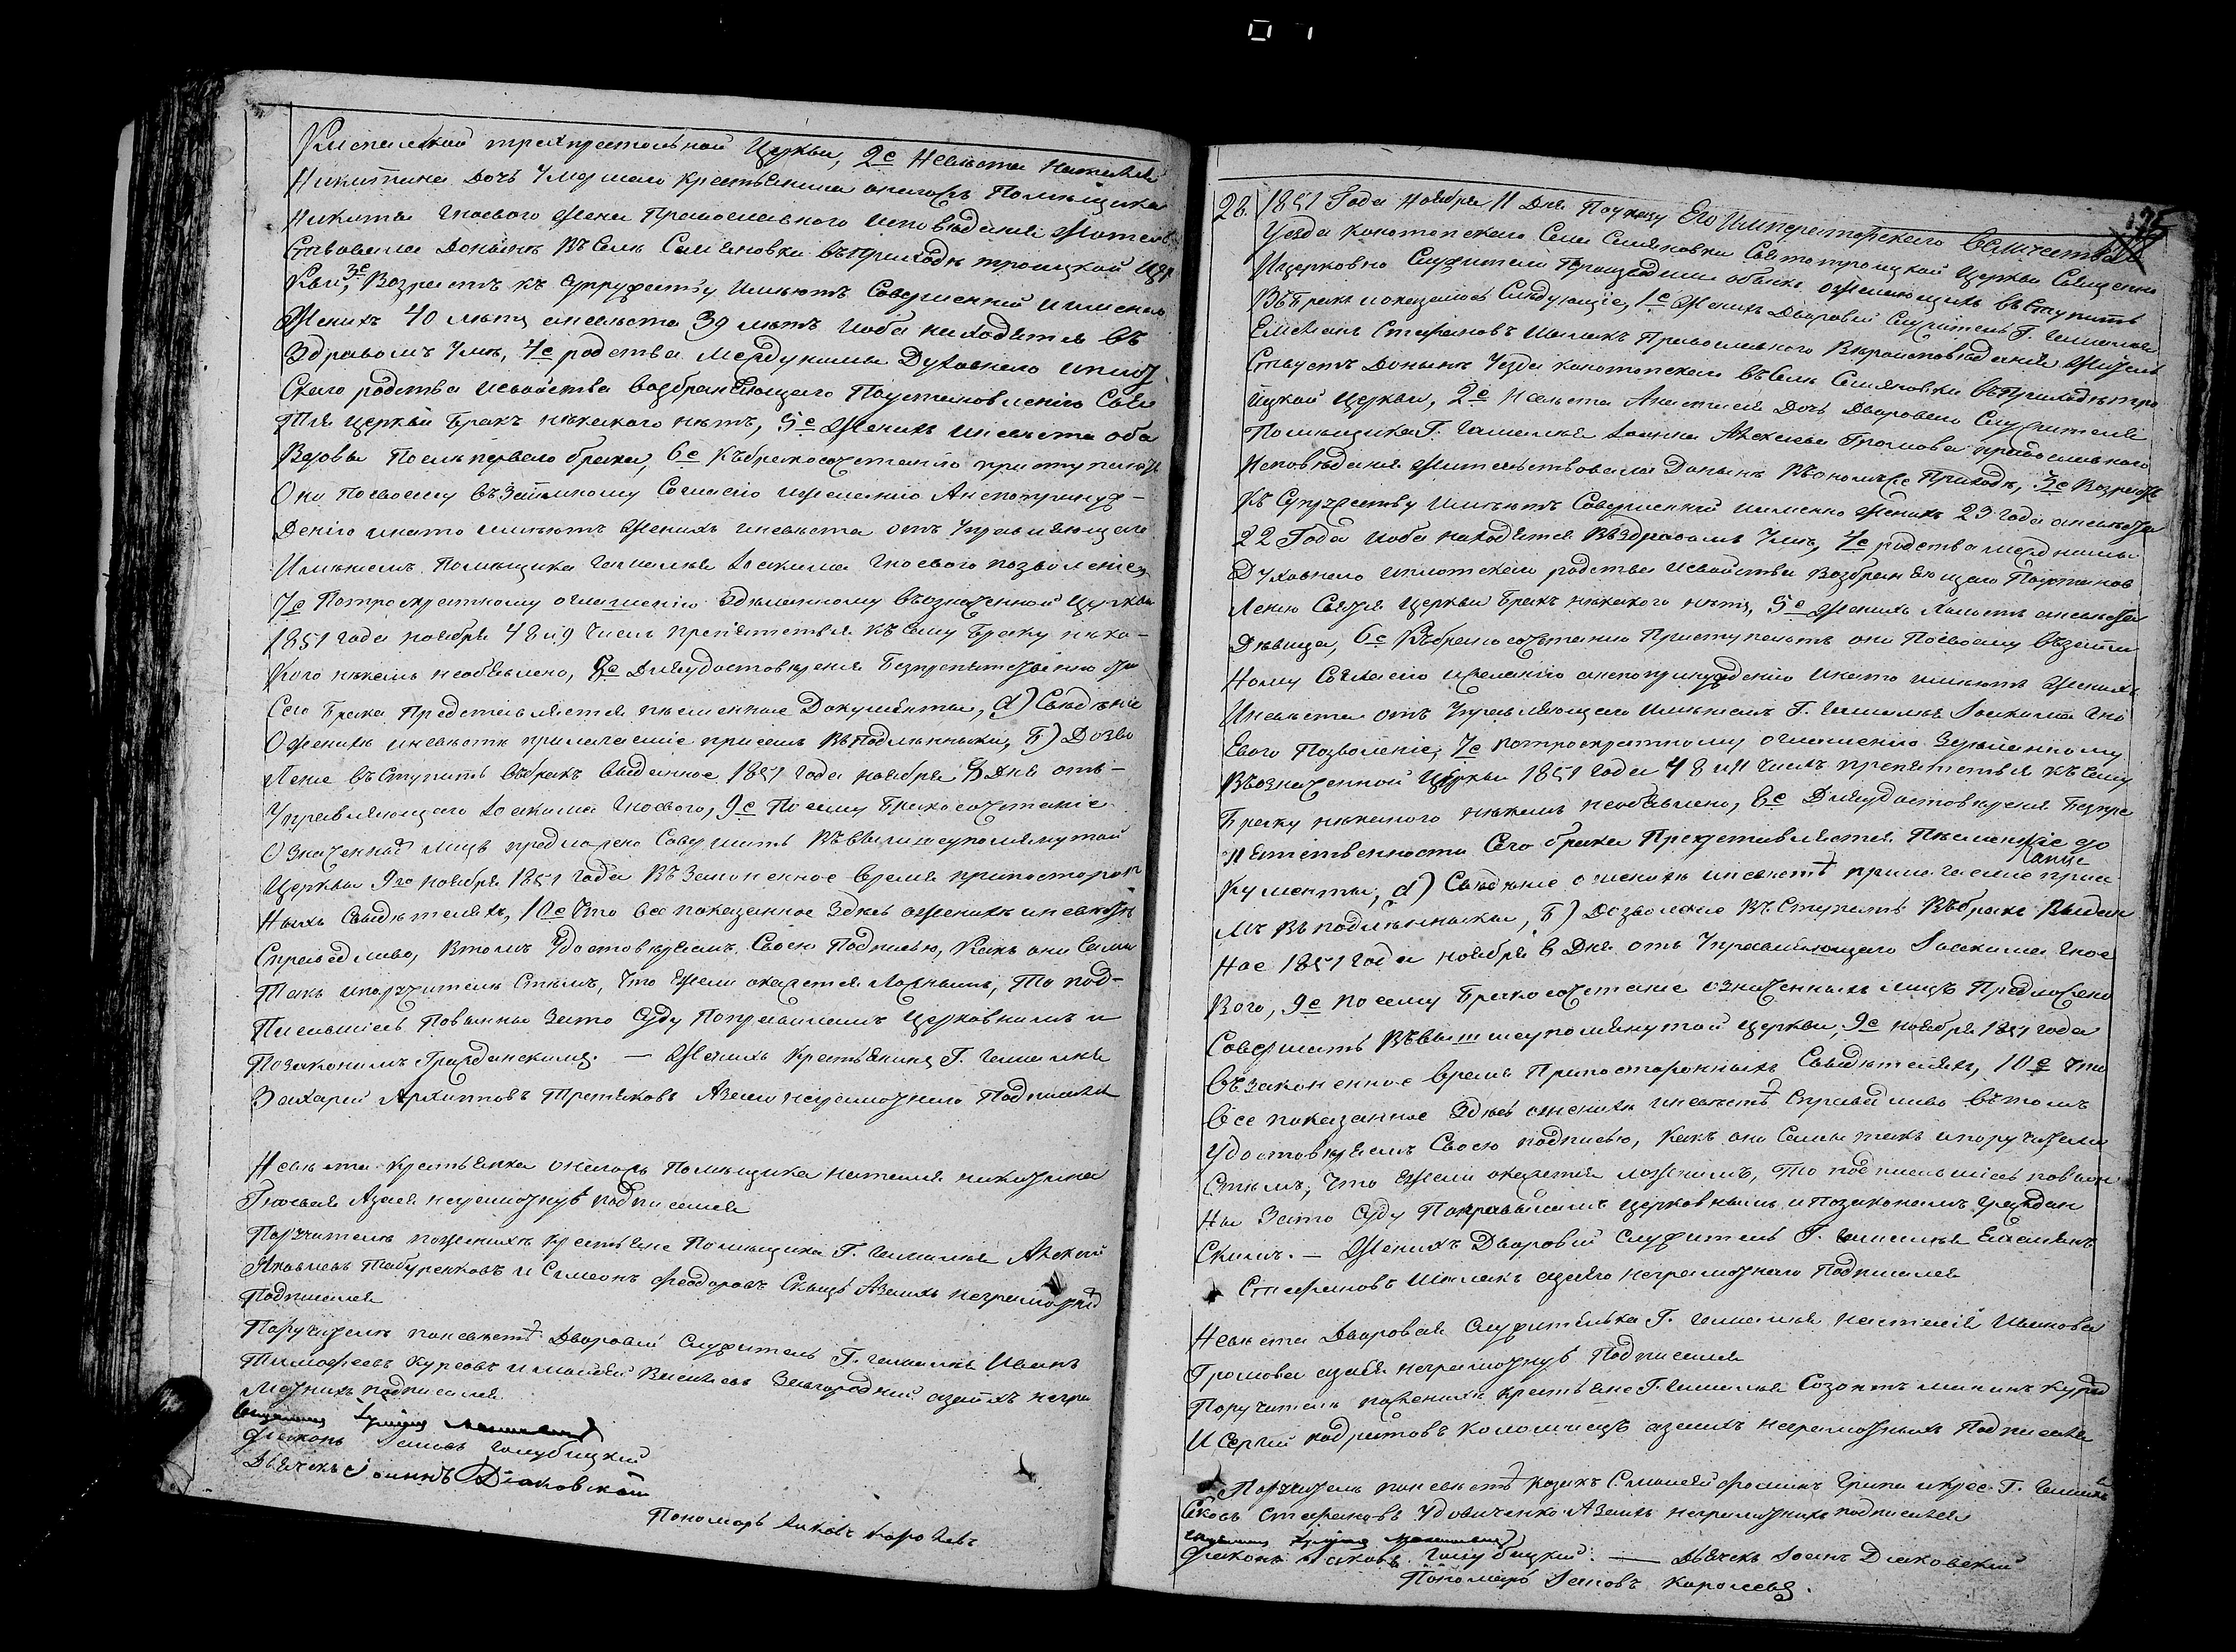 трехпрестольной Церкви, 2е Невѣста Наталія
Никитина Дочь Умершаго крестьянина оногожъ Помѣщика
Никиты Гноеваго жена Православнаго исповѣданія жител
ствовала Донынѣ Въ Селѣ Семяновки въ приходѣ троицкой Цер
Кви, 3е Возрастъ къ супружеству Имѣютъ Совершенный именно
Женихъ 40 лѣтъ а невѣста 39 лѣтъ и оба находятся въ
Здравомъ Умѣ, 4е родства Между ними Духовнаго и плот
Скаго родства и свойства возбраняющаго По установленію Свя
тыя церкви Бракъ никакого нѣтъ, 5е Женихъ и невѣста оба
Вдовы Послѣ перваго брака, 6е Къ бракосочетанію приступаютъ
Они По своему взаимному Согласію и желанію А не по принуж-
денію и на то имѣютъ Женихъ и невѣста отъ Управляющаго
Имѣніемъ Помѣщика Гамалѣя Іоакима Гноеваго позволеніе
7е По троекратному оглашенію здѣланному въ означенной Церкви
1851 года ноября 4 8 и 9 Чиселъ препятствія къ сему Браку ника-
кого никемъ необъявлено, 8е Для удостовѣренія Безпрепятственности
Сего Брака Представляется писменные Документы, а) Свѣдѣніе
О женихѣ и невѣстѣ прилагаемые при семъ Въ подлинники, Б) Дозво
леніе въступить въ бракъ выданное 1851 года ноября 8 Дня отъ-
Управляющаго Іоакима Гноеваго, 9е По сему Бракосочетаніе
Означенныхъ лицъ предложено Совершить Въ вышеупомянутой
Церкви 9го ноября 1851 года Въ Законенное время при посторон
ныхъ свидѣтеляхъ, 10е Что все показанное Здѣсь о женихѣ и невѣстѣ
Справедливо, В томъ Удостовѣряемъ Своею Подписью, Какъ они Самы
Такъ и поручители Стѣмъ, Что Ежели окажется Ложнымъ, То под-
писавшіеся Повинны За то Суду По правиламъ Церковнымъ и
По законамъ Гражданскимъ. — Женихъ Крестьянинъ Г. Гамалѣя
Захарій Архиповъ Третяковъ А за его неграмотнаго Подписался
Невѣста крестьянка оногожъ Помѣщика Наталія Никитина
Гноевая А за ея неграмотную подписался
Поручители по женихѣ крестьяне Помѣщика Г. Гамалѣя Алексѣй
Яковлевъ Табуренковъ и Симеонъ Феодоровъ А за ихъ неграмотныхъ
Подписался
Поручители по невѣстѣ Дворовый Служитель Г. Гамалѣя Иванъ
Тимофеевъ Курсовъ и Василіевъ Загородній а за ихъ негра
мотныхъ подписался
Діаконъ Іаковъ Голубицкій
Дьячекъ Іоаннъ Діаковскій
Пономарь Іаковъ Королевъ
28. 1851 Года Ноября 11 Дня По указу Его Императорского Величества
Уезда Конотопскаго Села Семяновки Святотроицкой Церкви Священно
И церковно Служители Производили обыскъ о желающихъ въступить
Въ Бракъ и оказалось Слѣдующіе, 1е Женихъ Дворовый Служитель Г. Гамалѣя
Емелянъ Стефановъ Шпакъ Православнаго Вѣроисповѣданія жител
ствуетъ Донынѣ Уезда Конотопскаго въ Селѣ Семяновки въ Приходѣ тро
ицкой Церкви, 2е Невѣста Анастасія Дочь Дворового Служителя
Помѣщика Г. Гамалѣя Іоанна Алексѣева Громова православнаго
Исповѣданія жительствовала Донынѣ Въ ономъ же Приходѣ, 3е Возрастъ
Къ Супружеству Имѣютъ Совершенный именно Женихъ 23 года а невѣста
22 Года и оба находятся Въ здравомъ Умѣ, 4е родства между ними
Духовнаго и плотскаго родства и свойства Возбраняющаго По установ
ленію Святыя Церкви Бракъ никакого нѣтъ, 5е Женихъ холостъ а невѣста
Дѣвица, 6е Къ бракосочетанію Приступаютъ они По своему взаим
ному Согласію и желанію а не по принужденію и на то имѣютъ Женихъ
И невѣста отъ Управляющаго Имѣніемъ Г. Гамалѣя Іоакима Гно
еваго Позволеніе, 7е По троекратному оглашенію Здѣланному
Въ означенной Церкви 1851 года 4 8 и 11 чиселъ препятствія къ сему
Браку никакого никемъ необъявлено, 8е Для удостовѣренія Безпре
пятственности Сего брака Представляется Писменные до
кументы, а) Свѣдѣніе о женихѣ и невѣстѣ прилагаемые при се
мъ Въ подлинники, Б) Дозволеніе Въступить Въ бракъ Выдан
ное 1851 года ноября 8 Дня отъ Управляющаго Іоакима Гное
ваго, 9е По сему Бракосочетаніе означенныхъ лицъ Предложено
Совершить Въ вышеупомянутой Церкви, 9е ноября 1851 года
въ законенное время При постороннихъ Свидѣтеляхъ, 10е Что
все показанное Здѣсь о женихѣ и невѣстѣ Справедливо въ томъ
Удостовѣряемъ Своею подписью, Какъ они Самы такъ и поручители
Стѣмъ, что Ежели окажется ложнимъ, То подписавшіесь повин
ны За то Суду По правиламъ Церковнымъ и По законамъ Граждан
скимъ. — Женихъ Дворовый Служитель Г. Гамалѣя Емелянъ
Стефановъ Шпакъ а за его неграмотнаго Подписался
Невѣста Дворовая Служителька Г. Гамалѣя Иванова
Громова а за ея неграмотную Подписался
Поручители по женихѣ крестьяне Г. Гамалѣя Созонтъ
И Сергій Коломіецъ а за ихъ неграмотныхъ Подписался
Поручители по невѣстѣ козакъ Грипа и крес. Г. Гамалѣя
Яковъ Стефановъ Удовиченко А за ихъ неграмотныхъ подписался
Діаконъ Іаковъ Голубицкій. — Дьячекъ Іоанъ Діаковскій
Пономарь Іаковъ Королевъ.